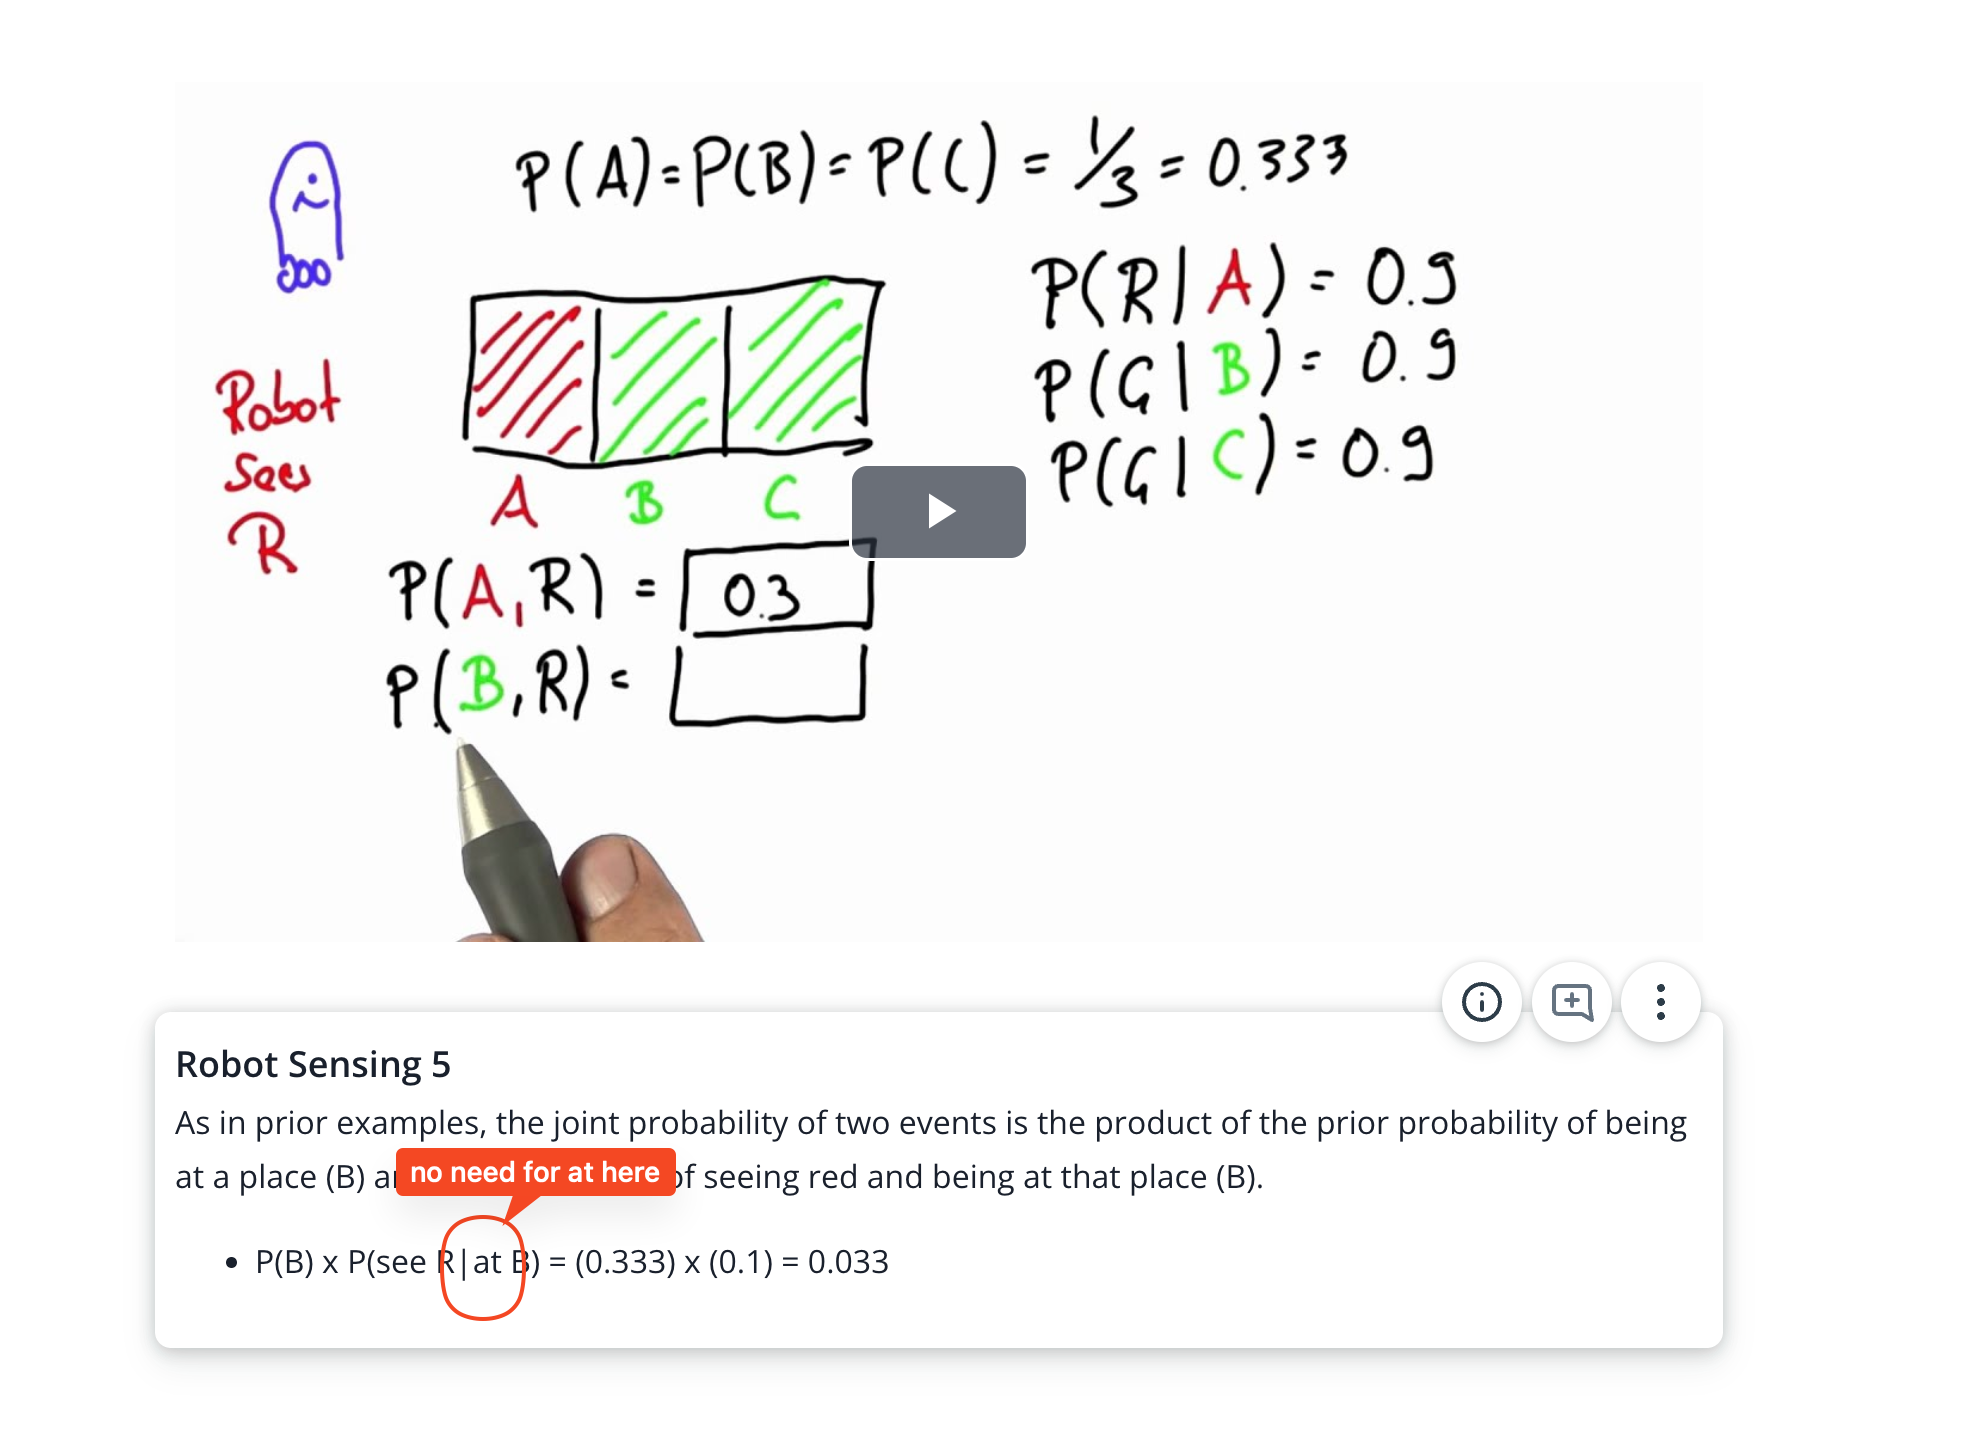 P(A)=P(B)=P(C) = 1/3 = 0.333
P(R|A) = 0.9
P(G|B) = 0.9
P(G|C) = 0.9
Robot
sees
R
A B C
P(A,R) = 0.3
P(B,R) =
Robot Sensing 5
As in prior examples, the joint probability of two events is the product of the prior probability of being
at a place (B) of seeing red and being at that place (B).
no need for at here
• P(B) x P(see R|at B) = (0.333) x (0.1) = 0.033